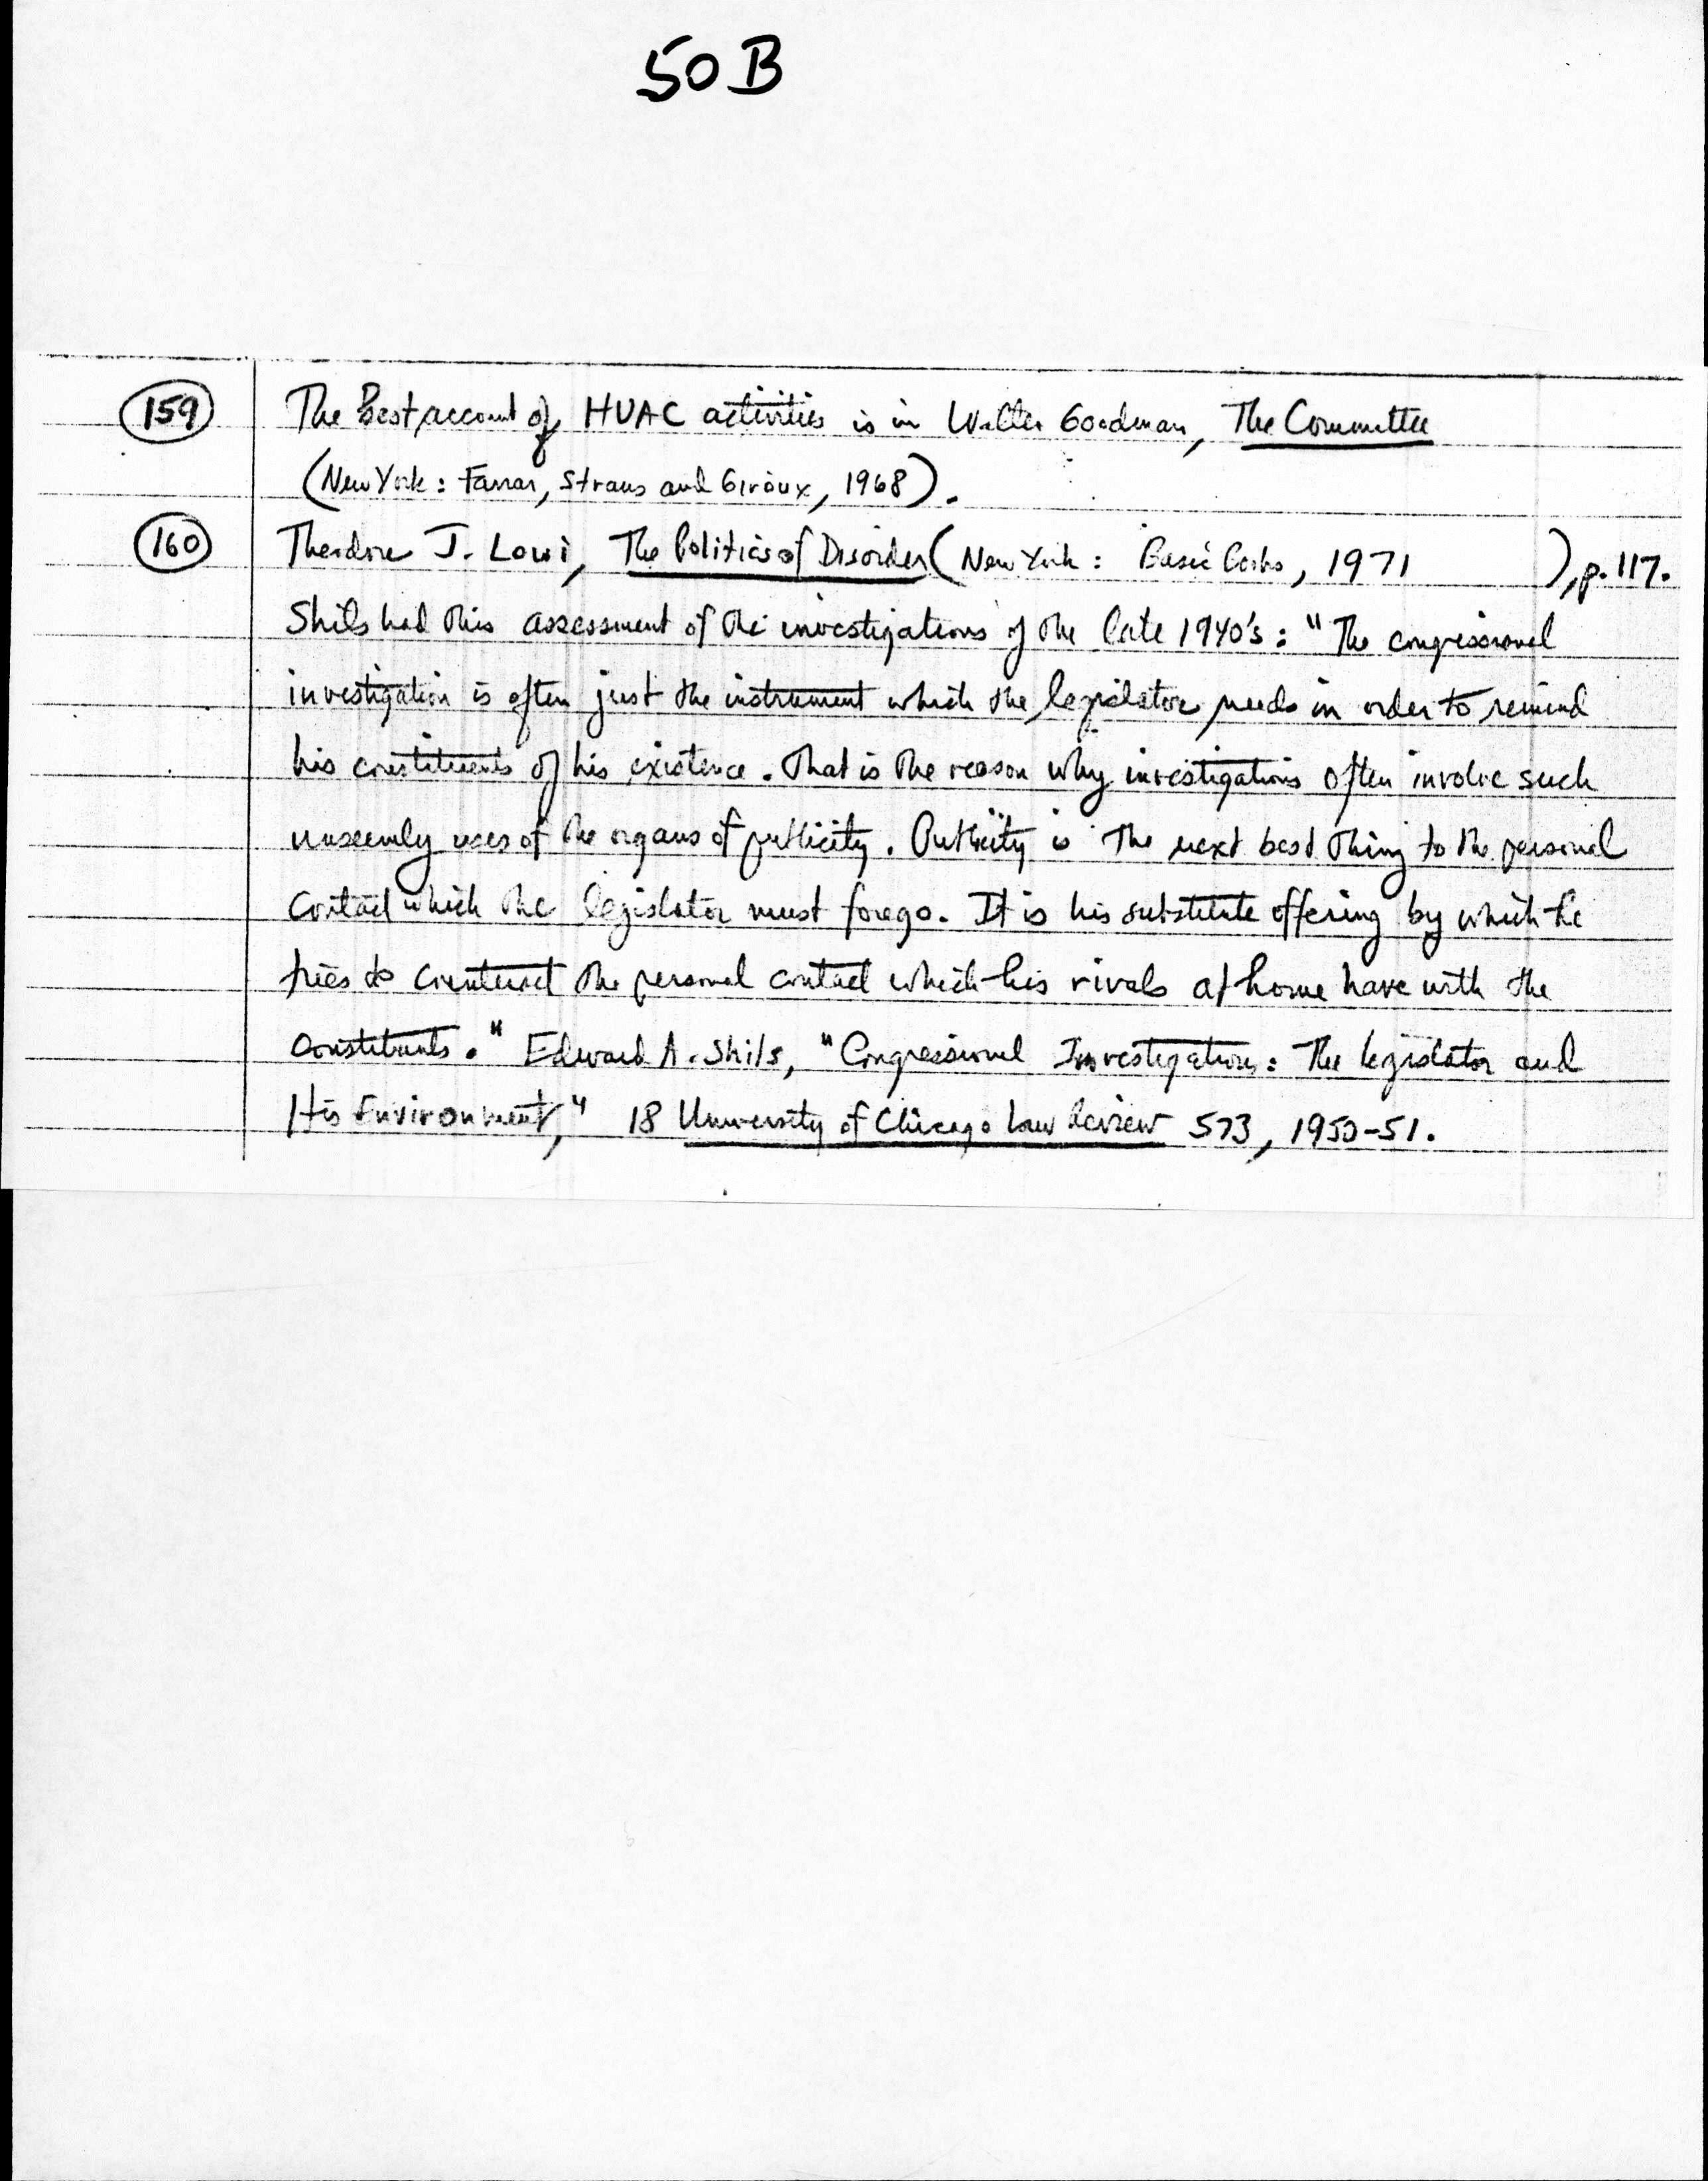 50B
159 The Best account of HUAC activities is in Walter Goodman, The Committee
(New York: Farrar, Straus and Giroux, 1968).
160 Theodore J. Lowi, The Politics of Disorder (New York: Basic Books, 1971 ), p. 117.
Shils had this assessment of the investigations of the late 1940's: "The congressional
investigation is often just the instrument which the legislator needs in order to remind
his constituents of his existence. That is the reason why investigations often involve such
unseemly uses of the organs of publicity. Publicity is the next best thing to the personal
contact which the legislator must forego. It is his substitute offering by which he
tries to counteract the personal contact which his rivals at home have with the
constituents." Edward A. Shils, "Congressional Investigations: The legislator and
His Environment," 18 University of Chicago Law Review 573, 1950-51.